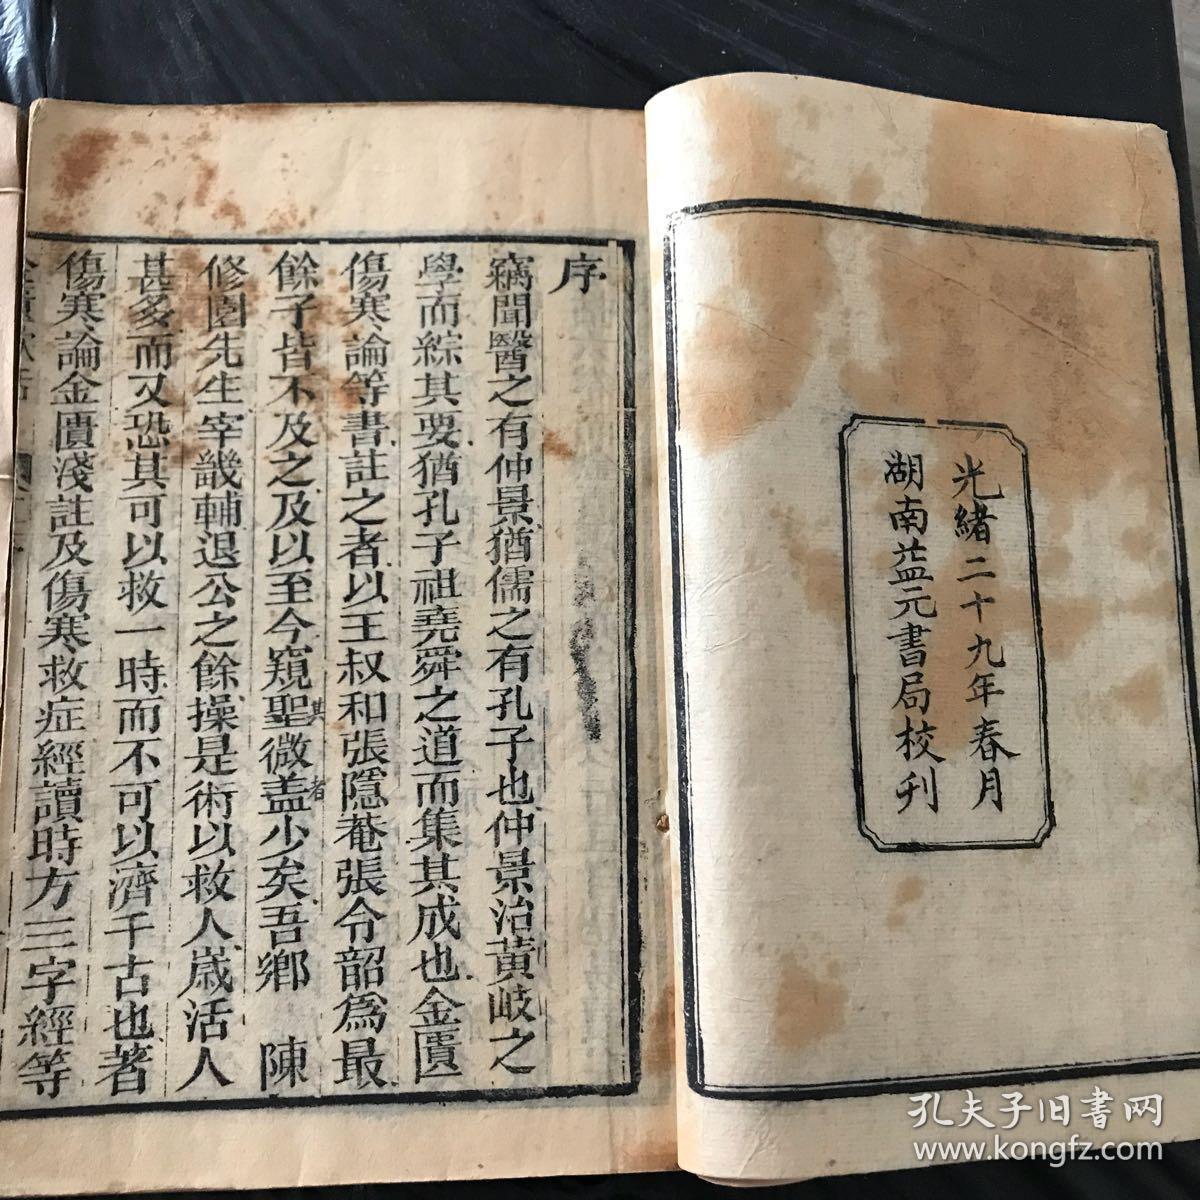 光緒二十九年春月
湖南益元書局校刋
序
竊聞醫之有仲景猶儒之有孔子也仲景治黃岐之
學而綜其要猶孔子祖堯舜之道而集其成也金匱
傷寒論等書註之者以王叔和張隱菴張令韶爲最
餘子皆不及之及以至今窺聖微盖少矣吾鄕 陳
其 者
修園先生宰畿輔退公之餘操是術以救人嵗活人
甚多而又恐其可以救一時而不可以濟千古也著
傷寒論金匱淺註及傷寒救症經讀時方三字經等
孔夫子旧书网
www.kongfz.com